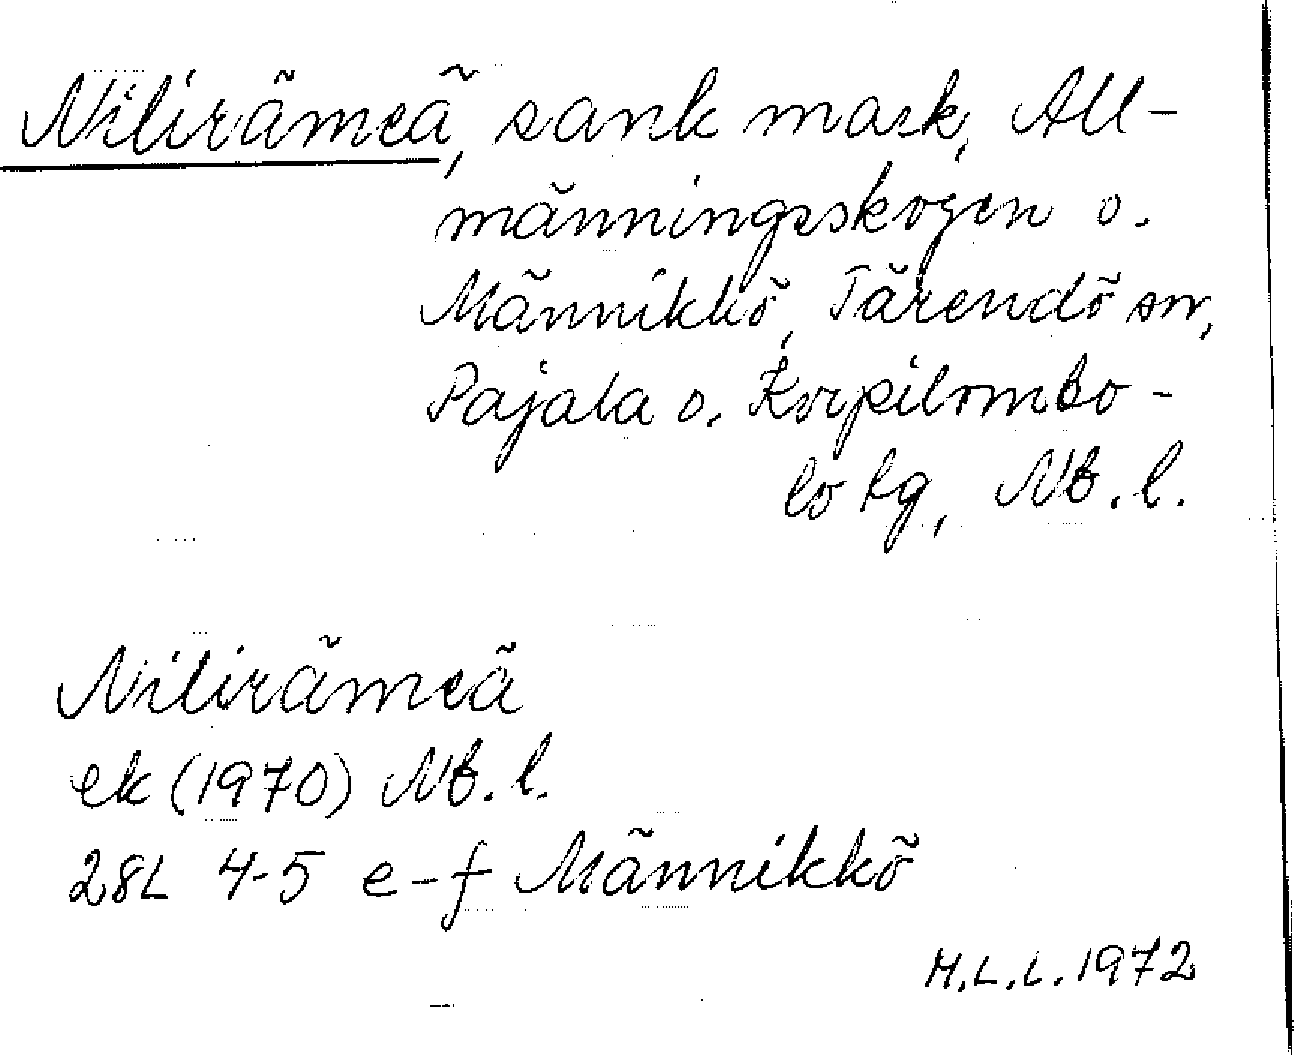 Nilirämeä, sank mark, All-
männingsskogen o.
Männikkö, Tärendö sn,
Pajala o. Korpilombo-
lo tg, Nb. l.
Nilirämeä
ek (1970) Nb. l.
28L 4-5 e-f Männikkö
M.L.L. 1972